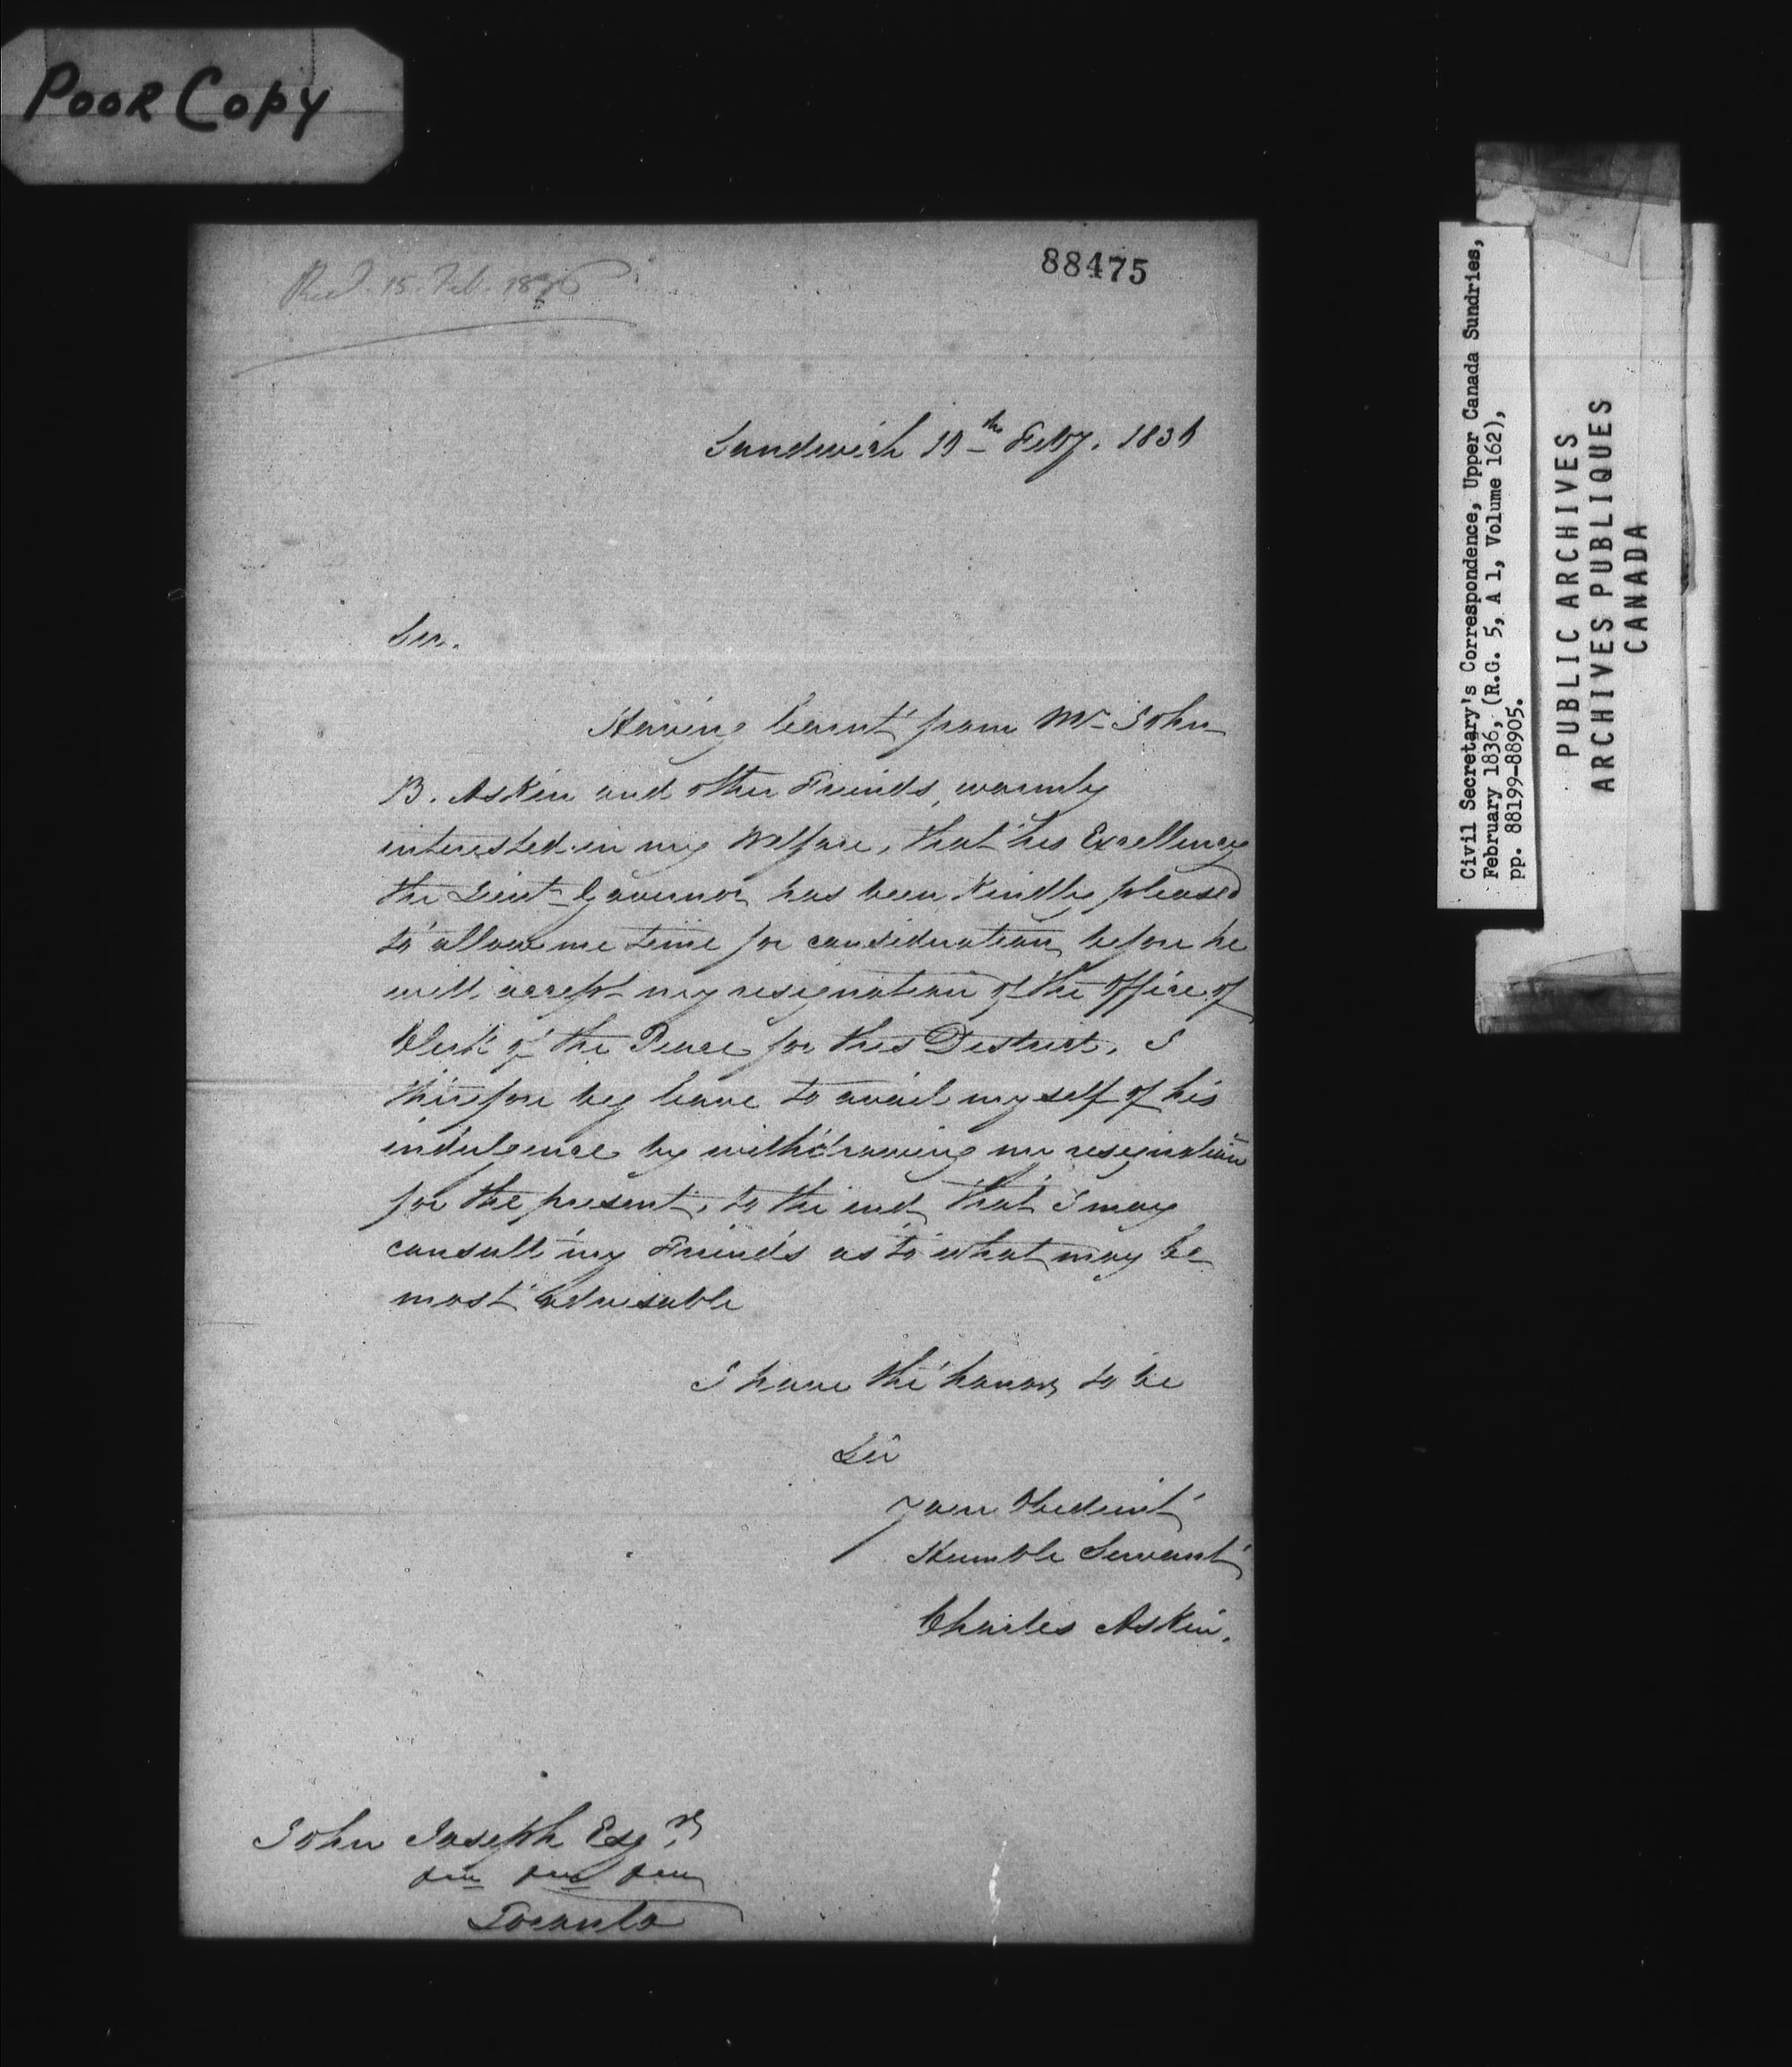 Poor Copy
88475
Recd. 15. Feb. 1836
Sandwich 10th Feby. 1836
Sir.
Having learnt from Mr John
B. Askin and other Friends, warmly
interested in my Welfare, that his Excellency
the Lieut Governor has been Kindly pleased
to allow me time for consideration before he
will accept my resignation of the Office of
Clerk of the Peace for this District. I
therefore beg leave to avail myself of his
indulgence by withdrawing my resignation
for the present, to the end that I may
consult my Friends as to what may be
most advisable
I have the honor to be
Sir
Your Obedient
Humble Servant
Charles Askin.
John Joseph Esqr.
Toronto
Civil Secretary's Correspondence, Upper Canada Sundries,
February 1836, (R.G. 5, A 1, Volume 162),
pp. 88199-88905.
PUBLIC ARCHIVES
ARCHIVES PUBLIQUES
CANADA